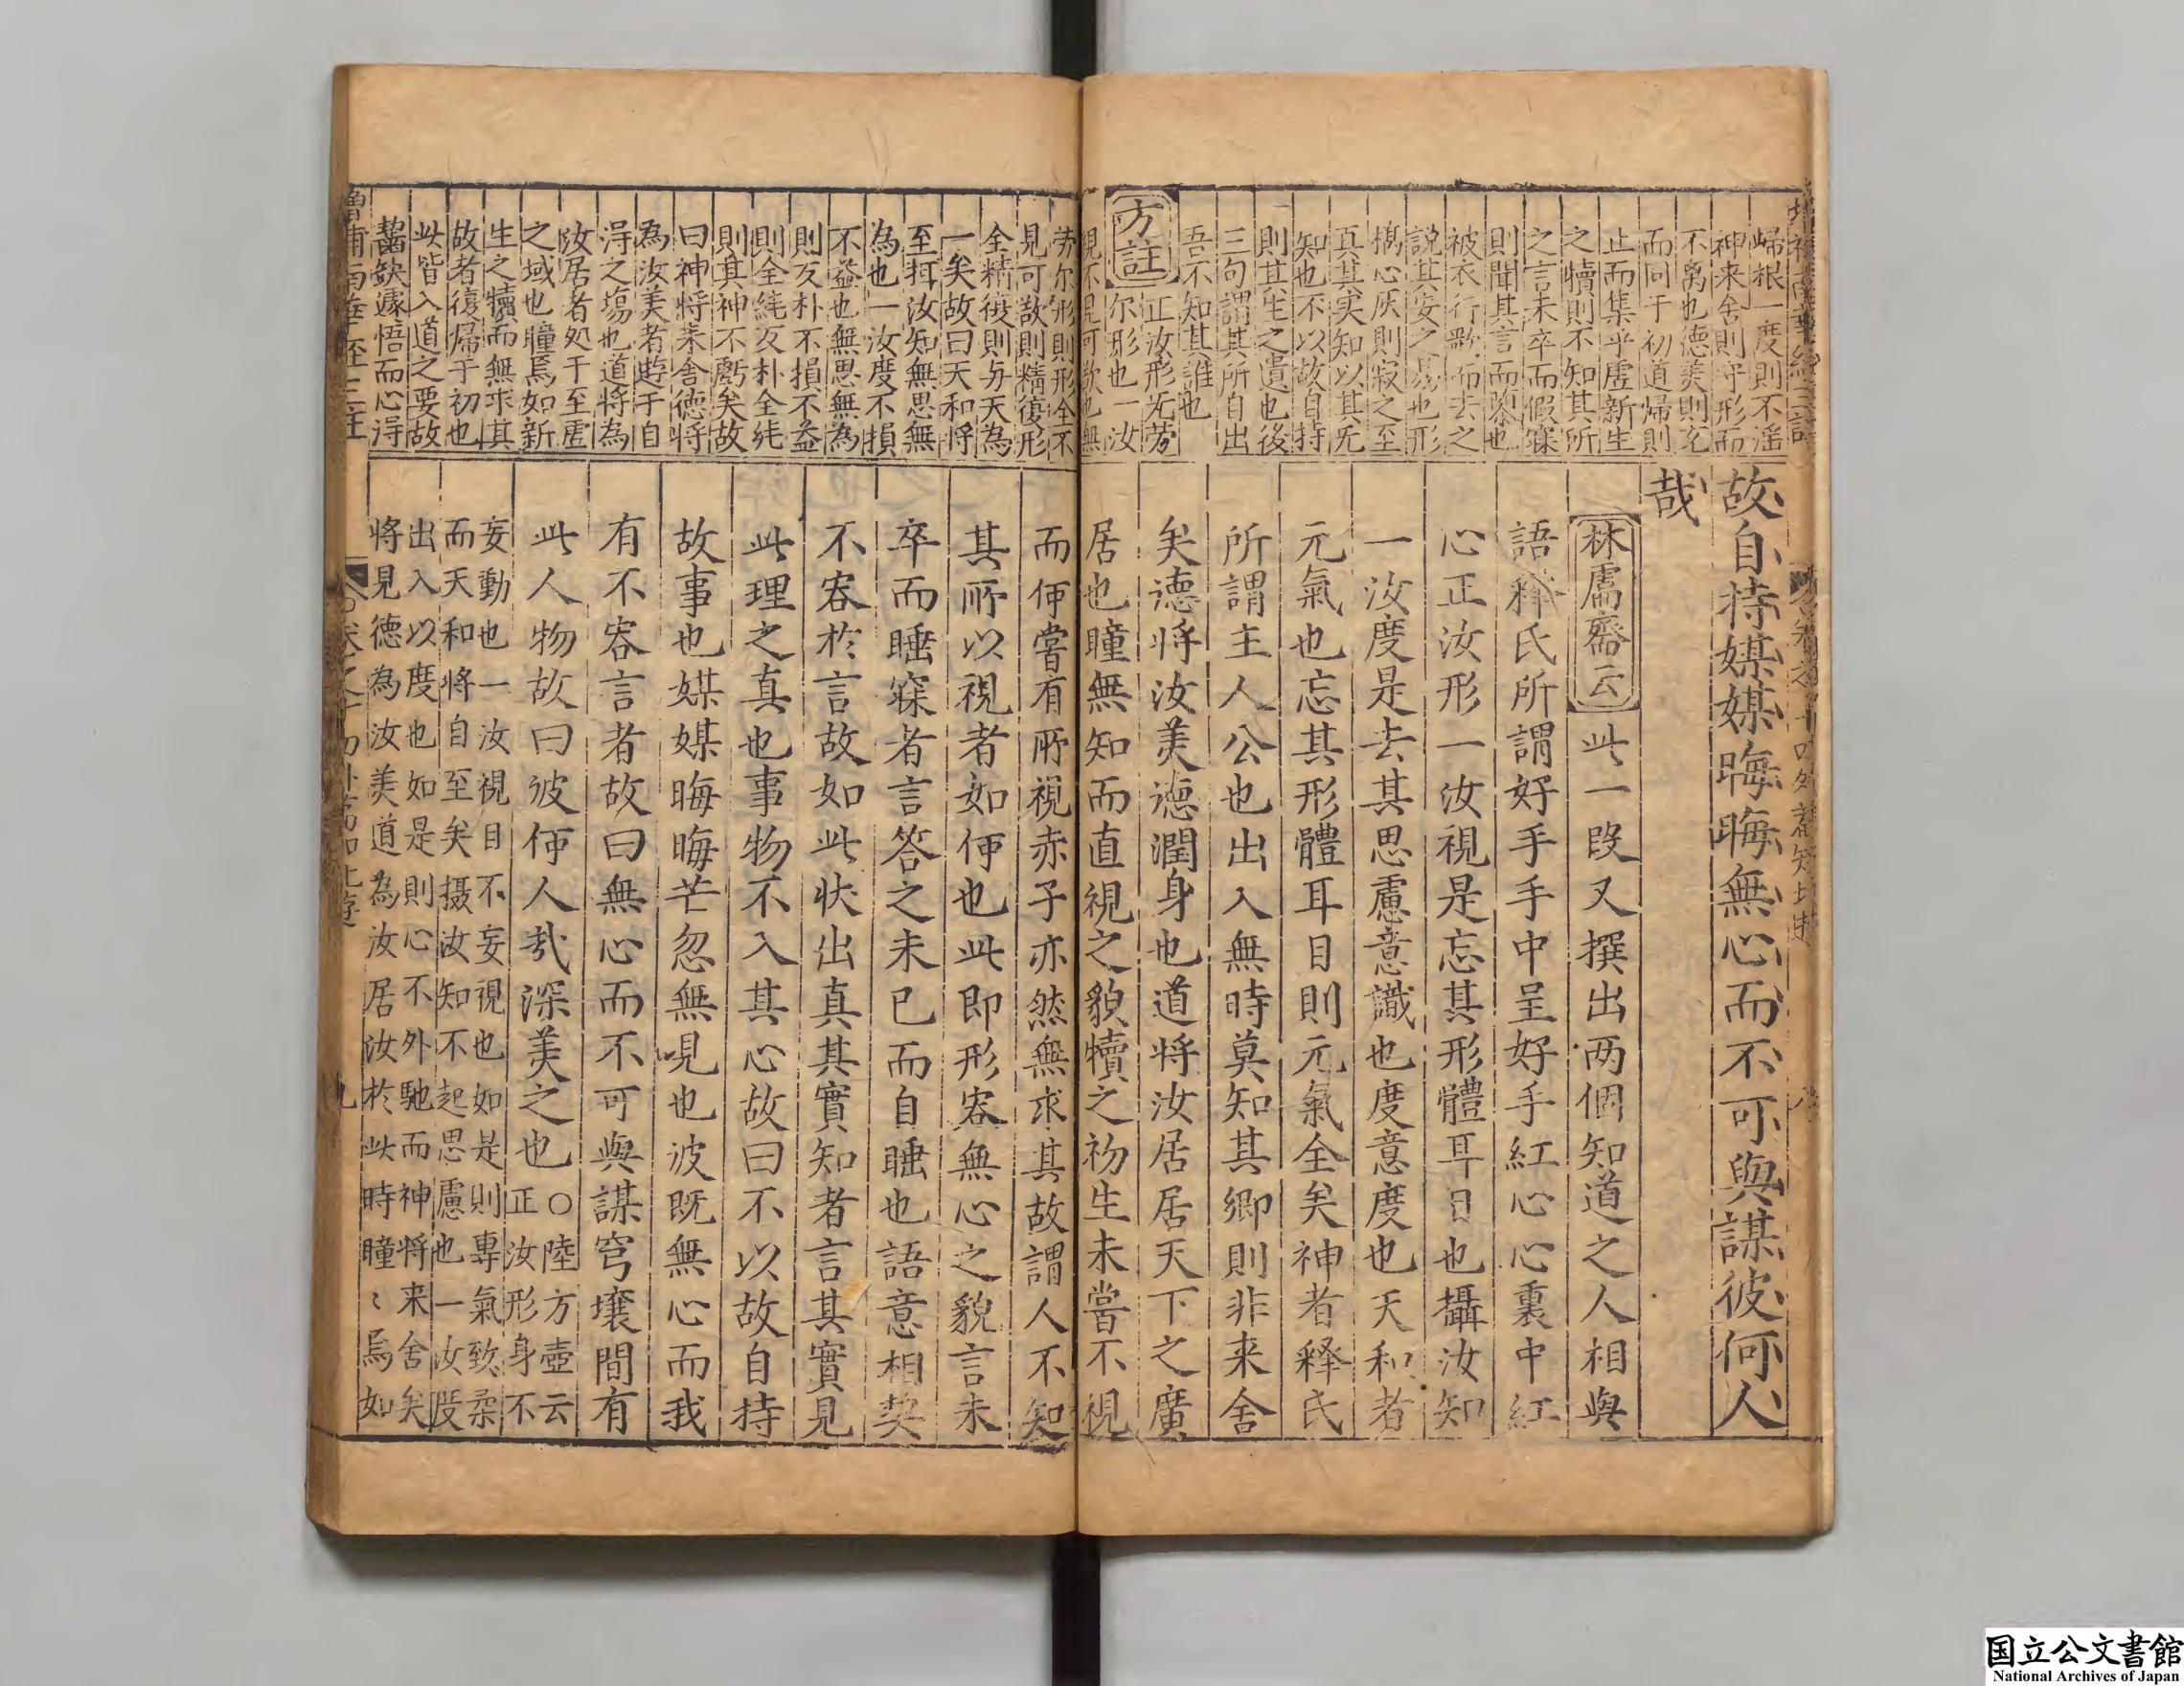 故自持媒媒晦晦無心而不可與謀彼何人
哉
林鬳齋云此一段又撰出两個知道之人相與
語釋氏所謂好手手中呈好手紅心心裏中紅
心正汝形一汝視是忘其形體耳目也攝汝知
一汝度是去其思慮意識也度意度也天和者
元氣也忘其形體耳目則元氣全矣神者釋氏
所謂主人公也出入無時莫知其鄉則非来舍
矣德将汝美德潤身也道将汝居居天下之廣
居也瞳無知而直視之貌犢之初生未嘗不視
而何嘗有所視赤子亦然無求其故謂人不知
其所以視者如何也此即形容無心之貌言未
卒而睡寐者言答之未已而自睡也語意相契
不容於言故如此状出真其實知者言其實見
此理之真也事物不入其心故曰不以故自持
故事也媒媒晦晦芒忽無見也彼既無心而我
有不容言者故曰無心而不可與謀穹壤間有
此人物故曰彼何人哉深美之也○陸方壺云
正汝形身不
妄動也一汝視目不妄視也如是則專氣致柔
而天和将自至矣摄汝知不起思慮也一汝度
出入以度也如是則心不外馳而神将来舍矣
将見德為汝美道為汝居汝於此時瞳〻焉如
歸根一度則不滛
神来舍則守形而
不离也德美則充
而同于初道歸則
止而集乎虛新生
之犢則不知其所
之言未卒而假寐
則聞其言而黙也
被衣行歌而去之
說其安之易也形
槁心灰則寂之至
真其实知以其旡
知也不以故自持
則其生之遺也後
三句謂其所自出
吾不知其誰也
方註
正汝形无劳
尔形也一汝
視不見可歆也無
劳尔形則形全不
見可歆則精復形
全精復則与天為
一矣故曰天和将
至摂汝知無思無
為也一汝度不損
不益也無思無為
則反朴不損不益
則全純反朴全純
則其神不虧矣故
曰神将来舍德将
為汝美者遊于自
淂之塲也道将為
汝居者処于至虛
之域也瞳焉如新
生之犢而無求其
故者復歸于初也
此皆入道之要故
齧缺遽悟而心淂
国立公文書館
National Archives of Japan